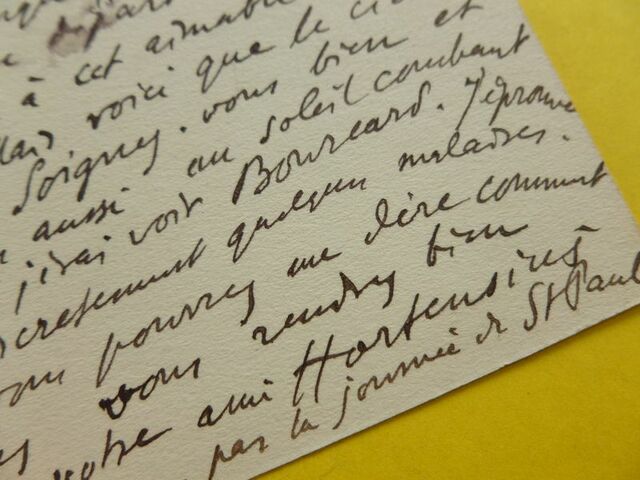 départ
à cet aimable
voici que le
Soignez-vous bien et
aussi au soleil couchant
j'irai voir Bourcard. J'éprouve
quelques malaises.
pourrez me dire comment
vous rendre bien
votre ami Hortensius
par la journée de St Paul